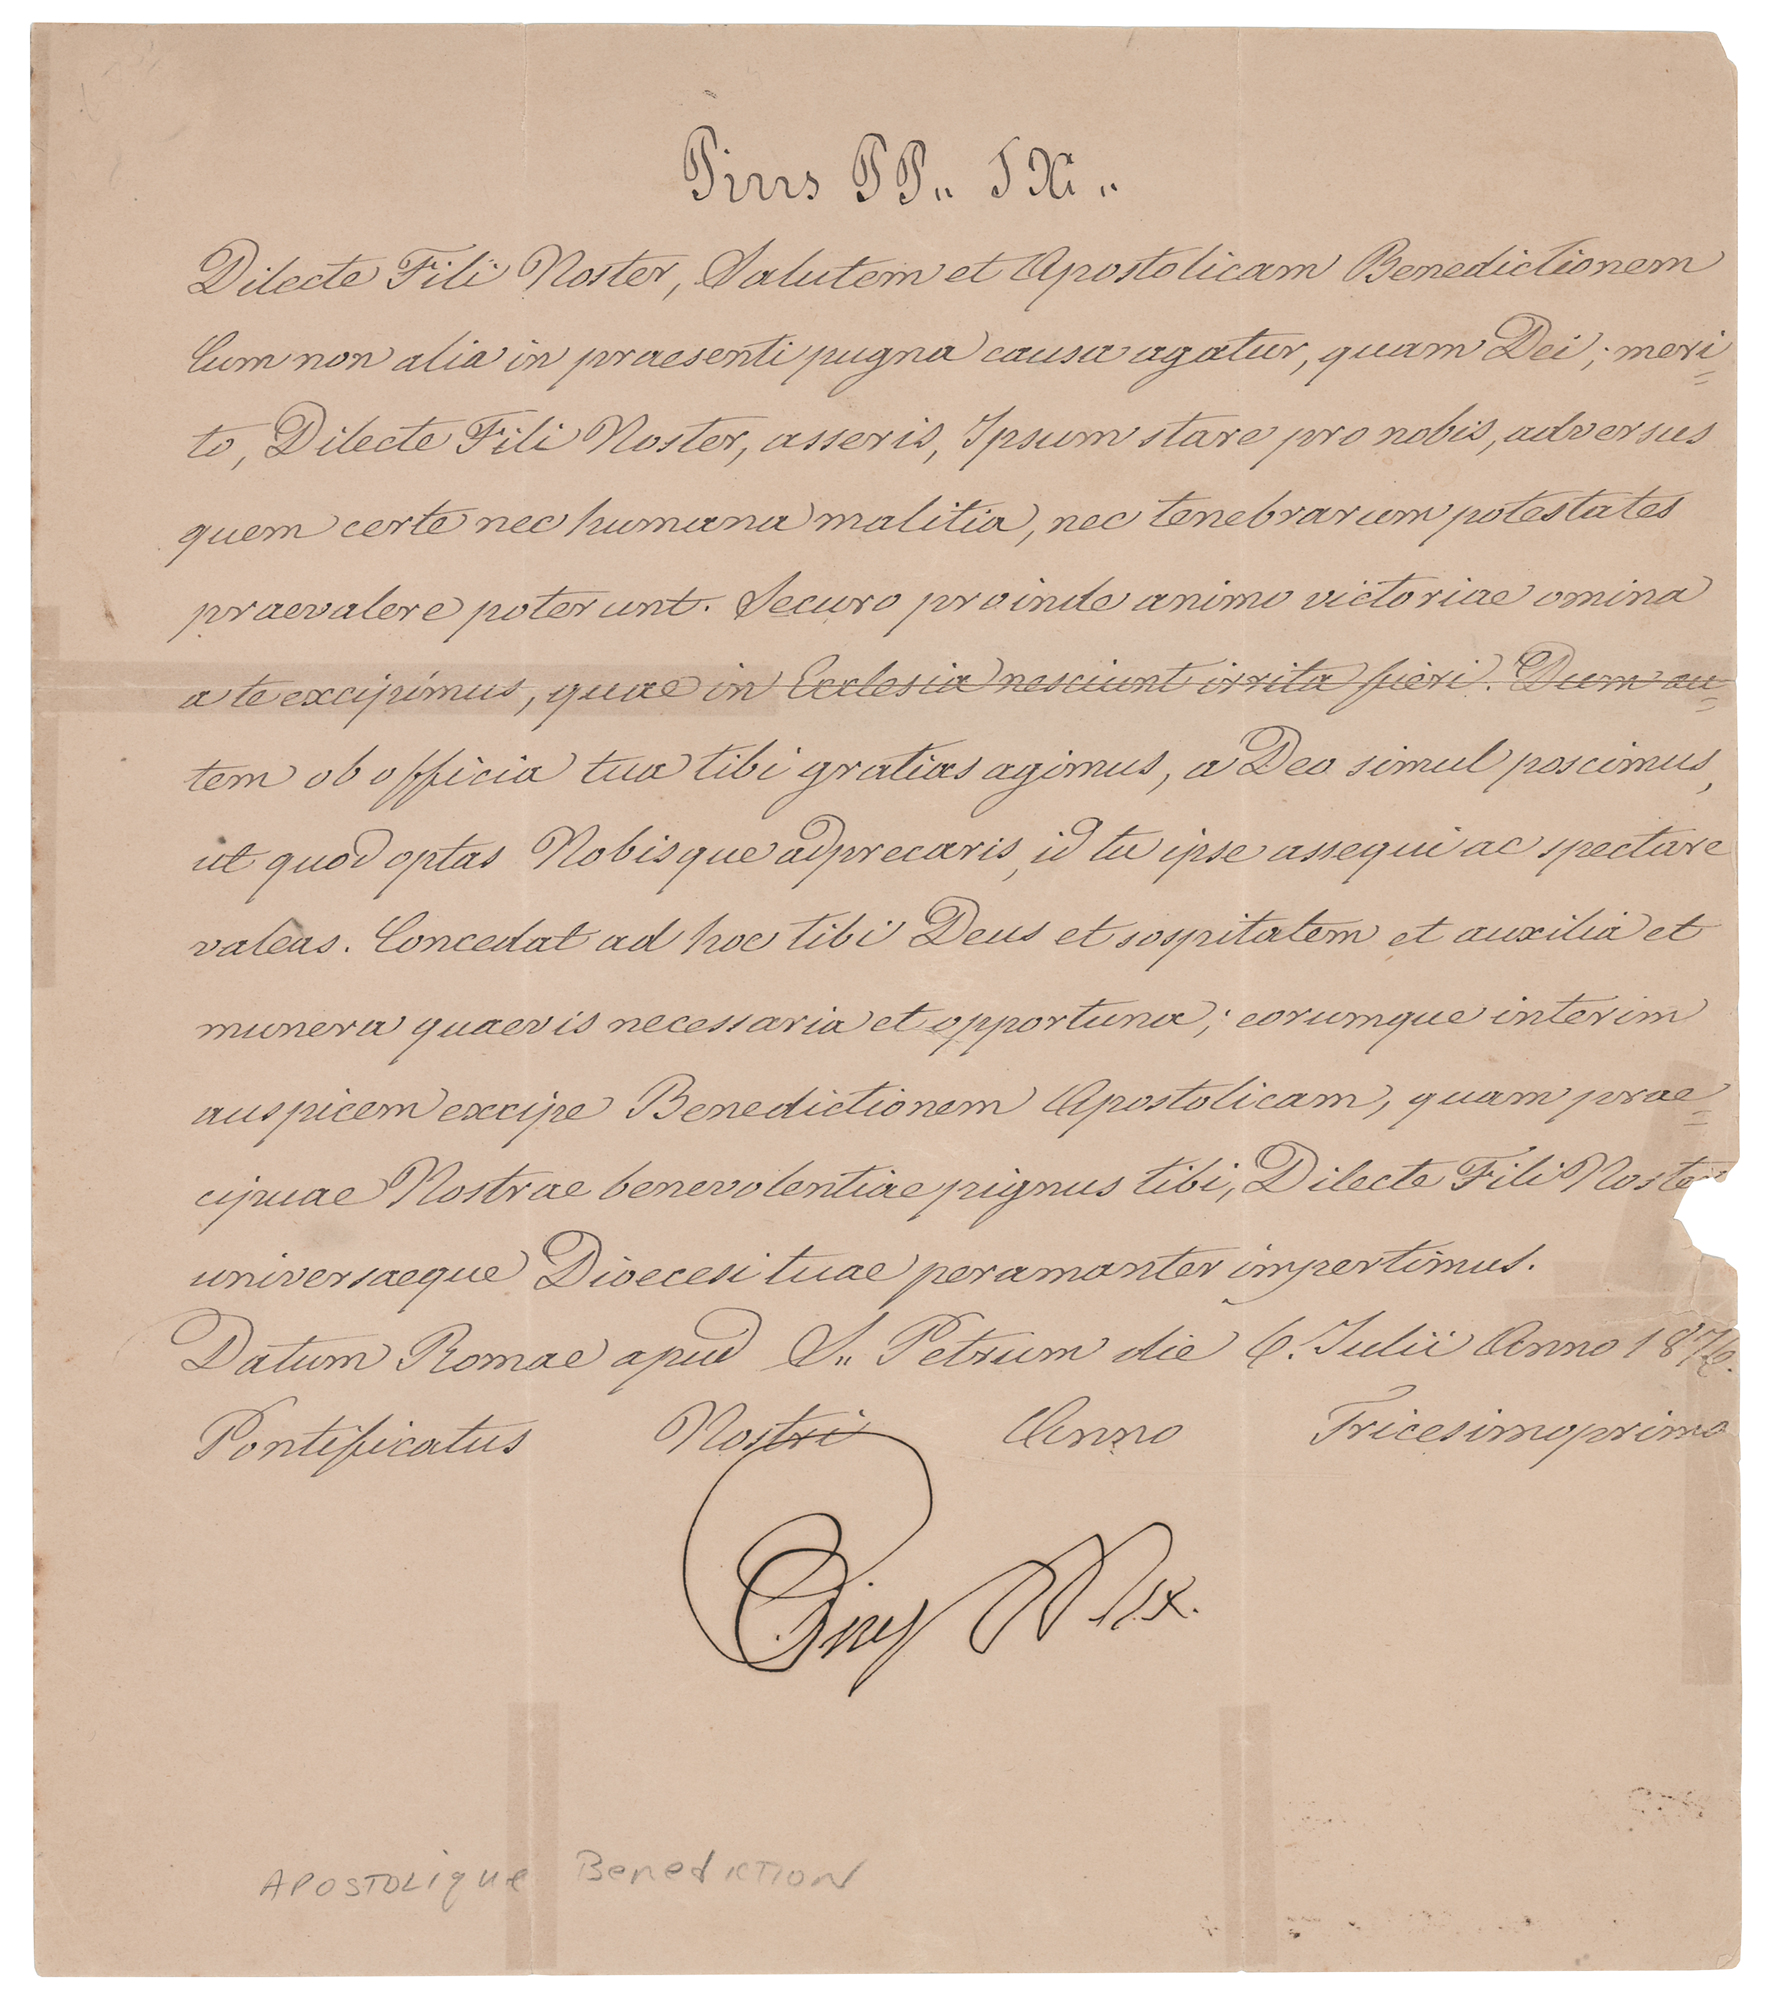 Pius PP. IX.
Dilecte Fili Noster, Salutem et Apostolicam Benedictionem
Cum non alia in praesenti pugna causa agatur, quam Dei; meri=
to, Dilecte Fili Noster, asseris, Ipsum stare pro nobis, adversus
quem certe nec humana malitia, nec tenebrarum potestates
praevalere poterunt. Securo proinde animo victoriae omina
a te excipimus, quae in Ecclesia nesciunt irrita fieri. Dum au=
tem ob officia tua tibi gratias agimus, a Deo simul poscimus,
ut quod optas Nobisque adprecaris, id tu ipse assequi ac spectare
valeas. Concedat ad hoc tibi Deus et sospitatem et auxilia et
munera quaevis necessaria et opportuna; eorumque interim
auspicem excipe Benedictionem Apostolicam, quam prae=
cipuae Nostrae benevolentiae pignus tibi, Dilecte Fili Noster
universaeque Dioecesi tuae peramanter impertimus.
Datum Romae apud S. Petrum die 6. Julii Anno 1876.
Pontificatus Nostri Anno Tricesimoprimo
Pius PP. IX.
APOSTOLIQUE BENEDICTION